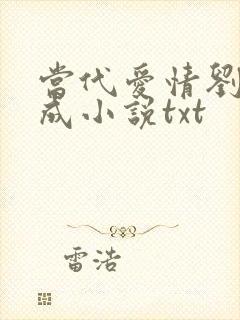 當代愛情劉
成小說txt
雷浩